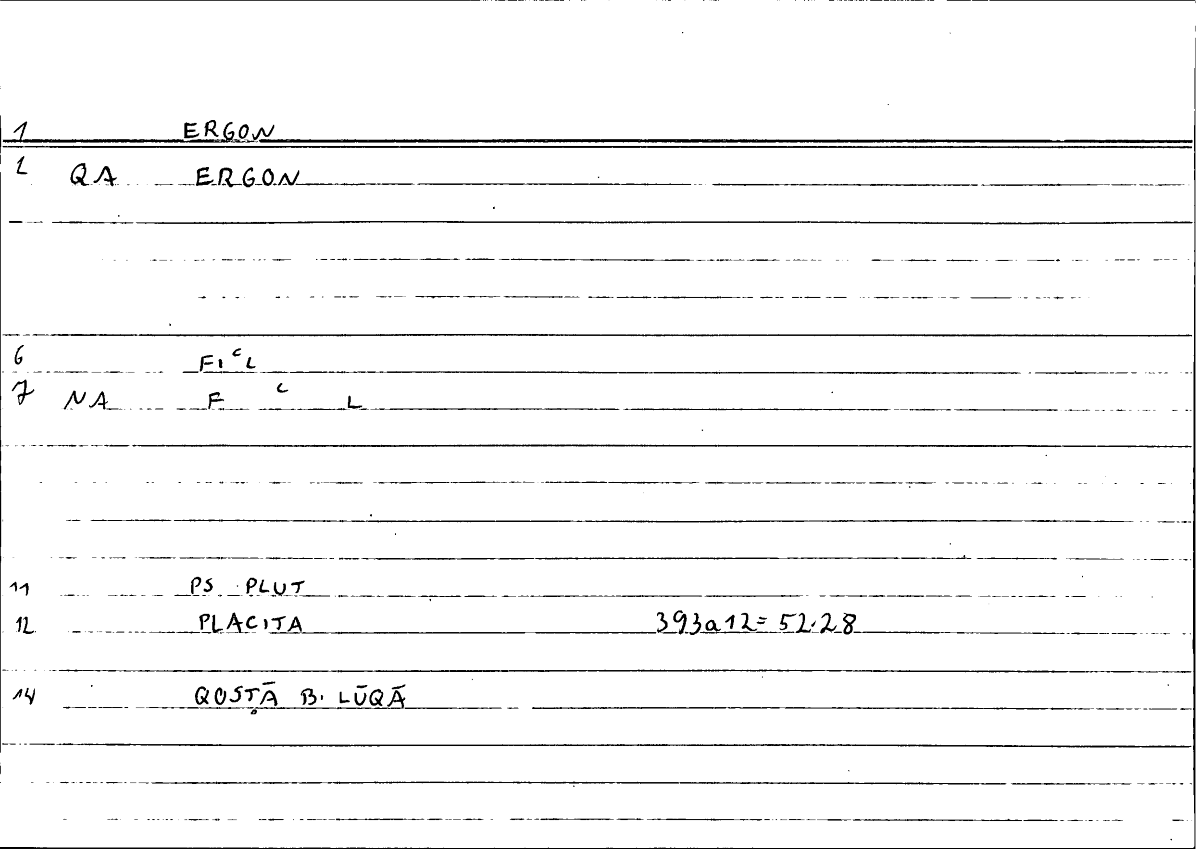 1 ERGON
2 QA ERGON
6 FIᶜL
7 NA F ᶜ L
11 PS PLUT
12 PLACITA 393a12=52.28
14 QOSṬĀ B. LŪQĀ